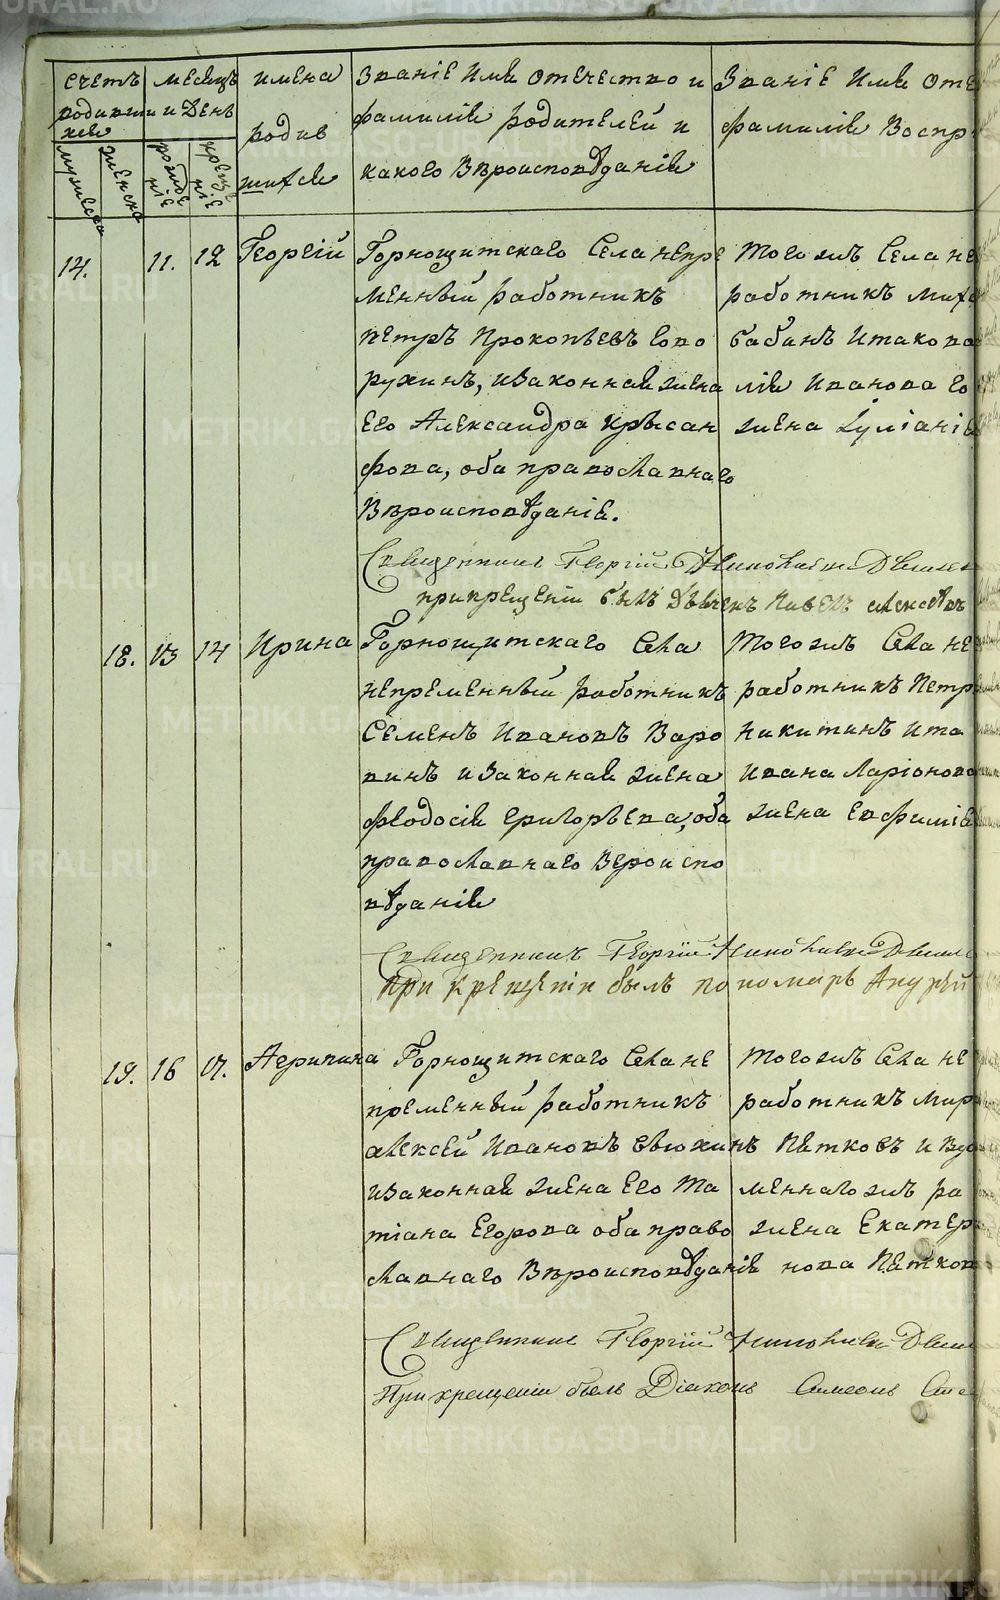 Счетъ родившихся
мужеска
женска
месяцъ и День
рожденіе
крещеніе
имена родившихся
Званіе Имя отечество и фамилія родителей и какого Вѣроисповѣданія
Званіе Имя Оте
фамилія Воспр
14. 11. 12 Георгій
Горнощитскаго Села непре
менный работникъ
петръ Прокопьевъ
рухинъ, изаконная жена
Его Александра Крысан
фова, оба православнаго
Вѣроисповѣданія.
Тогожъ Села не
работникъ
бабинъ Итакова
лія Иванова
жена Іуліанія
Священникъ Георгій
прикрещеніи былъ Павелъ
18. 13 14 Ирина
Горнощитскаго Села
непременный работникъ
Семенъ Ивановъ Варо
винъ изаконная жена
феодосія григорьева, оба
православнаго Вероиспо
вѣданія
Тогожъ Села не
работникъ Петр
Никитинъ Ита
Ивана Ларіонова
жена Евфимія
Священникъ Георгій
При крещеніи былъ пономарь Андрей
19. 16 17. Агрипина
Горнощитскаго Села не
пременный работникъ
алексей Ивановъ
изаконная жена Его Та
тіана Егорова оба право
славнаго Вѣроисповѣданія
Тогожъ Села не
работникъ Мир
Пятковъ и
меннагожъ ра
жена Екатер
нова Пятков
Священникъ Георгій
При крещеніи былъ Діаконъ Симеонъ
METRIKI.GASO-URAL.RU